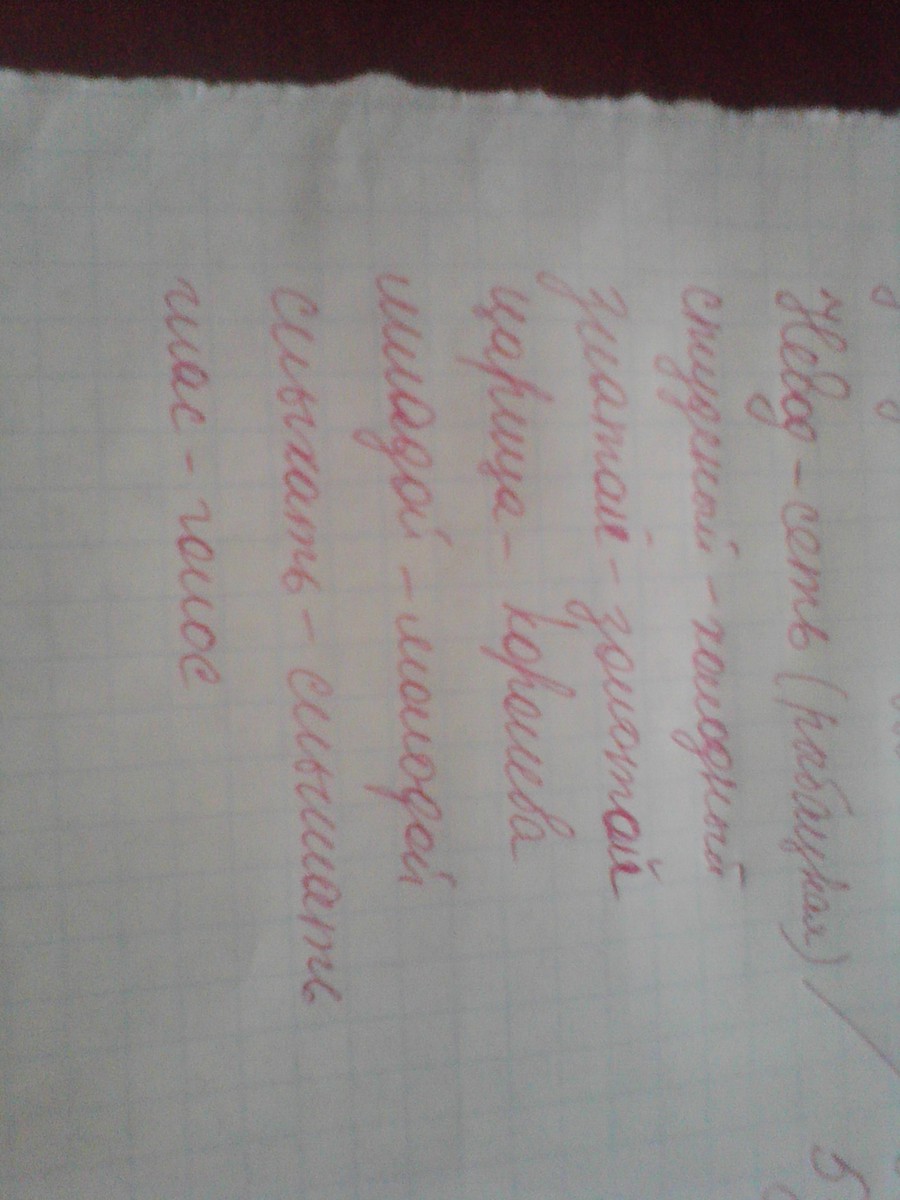 Невод - сеть (рыбацкая)
студеный - холодный
златой - золотой
царица - королева
младой - молодой
слыхать - слышать
глас - голос